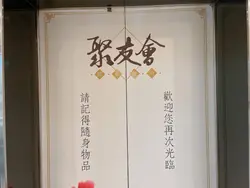 聚友會
歡迎您再次光臨
請記得隨身物品